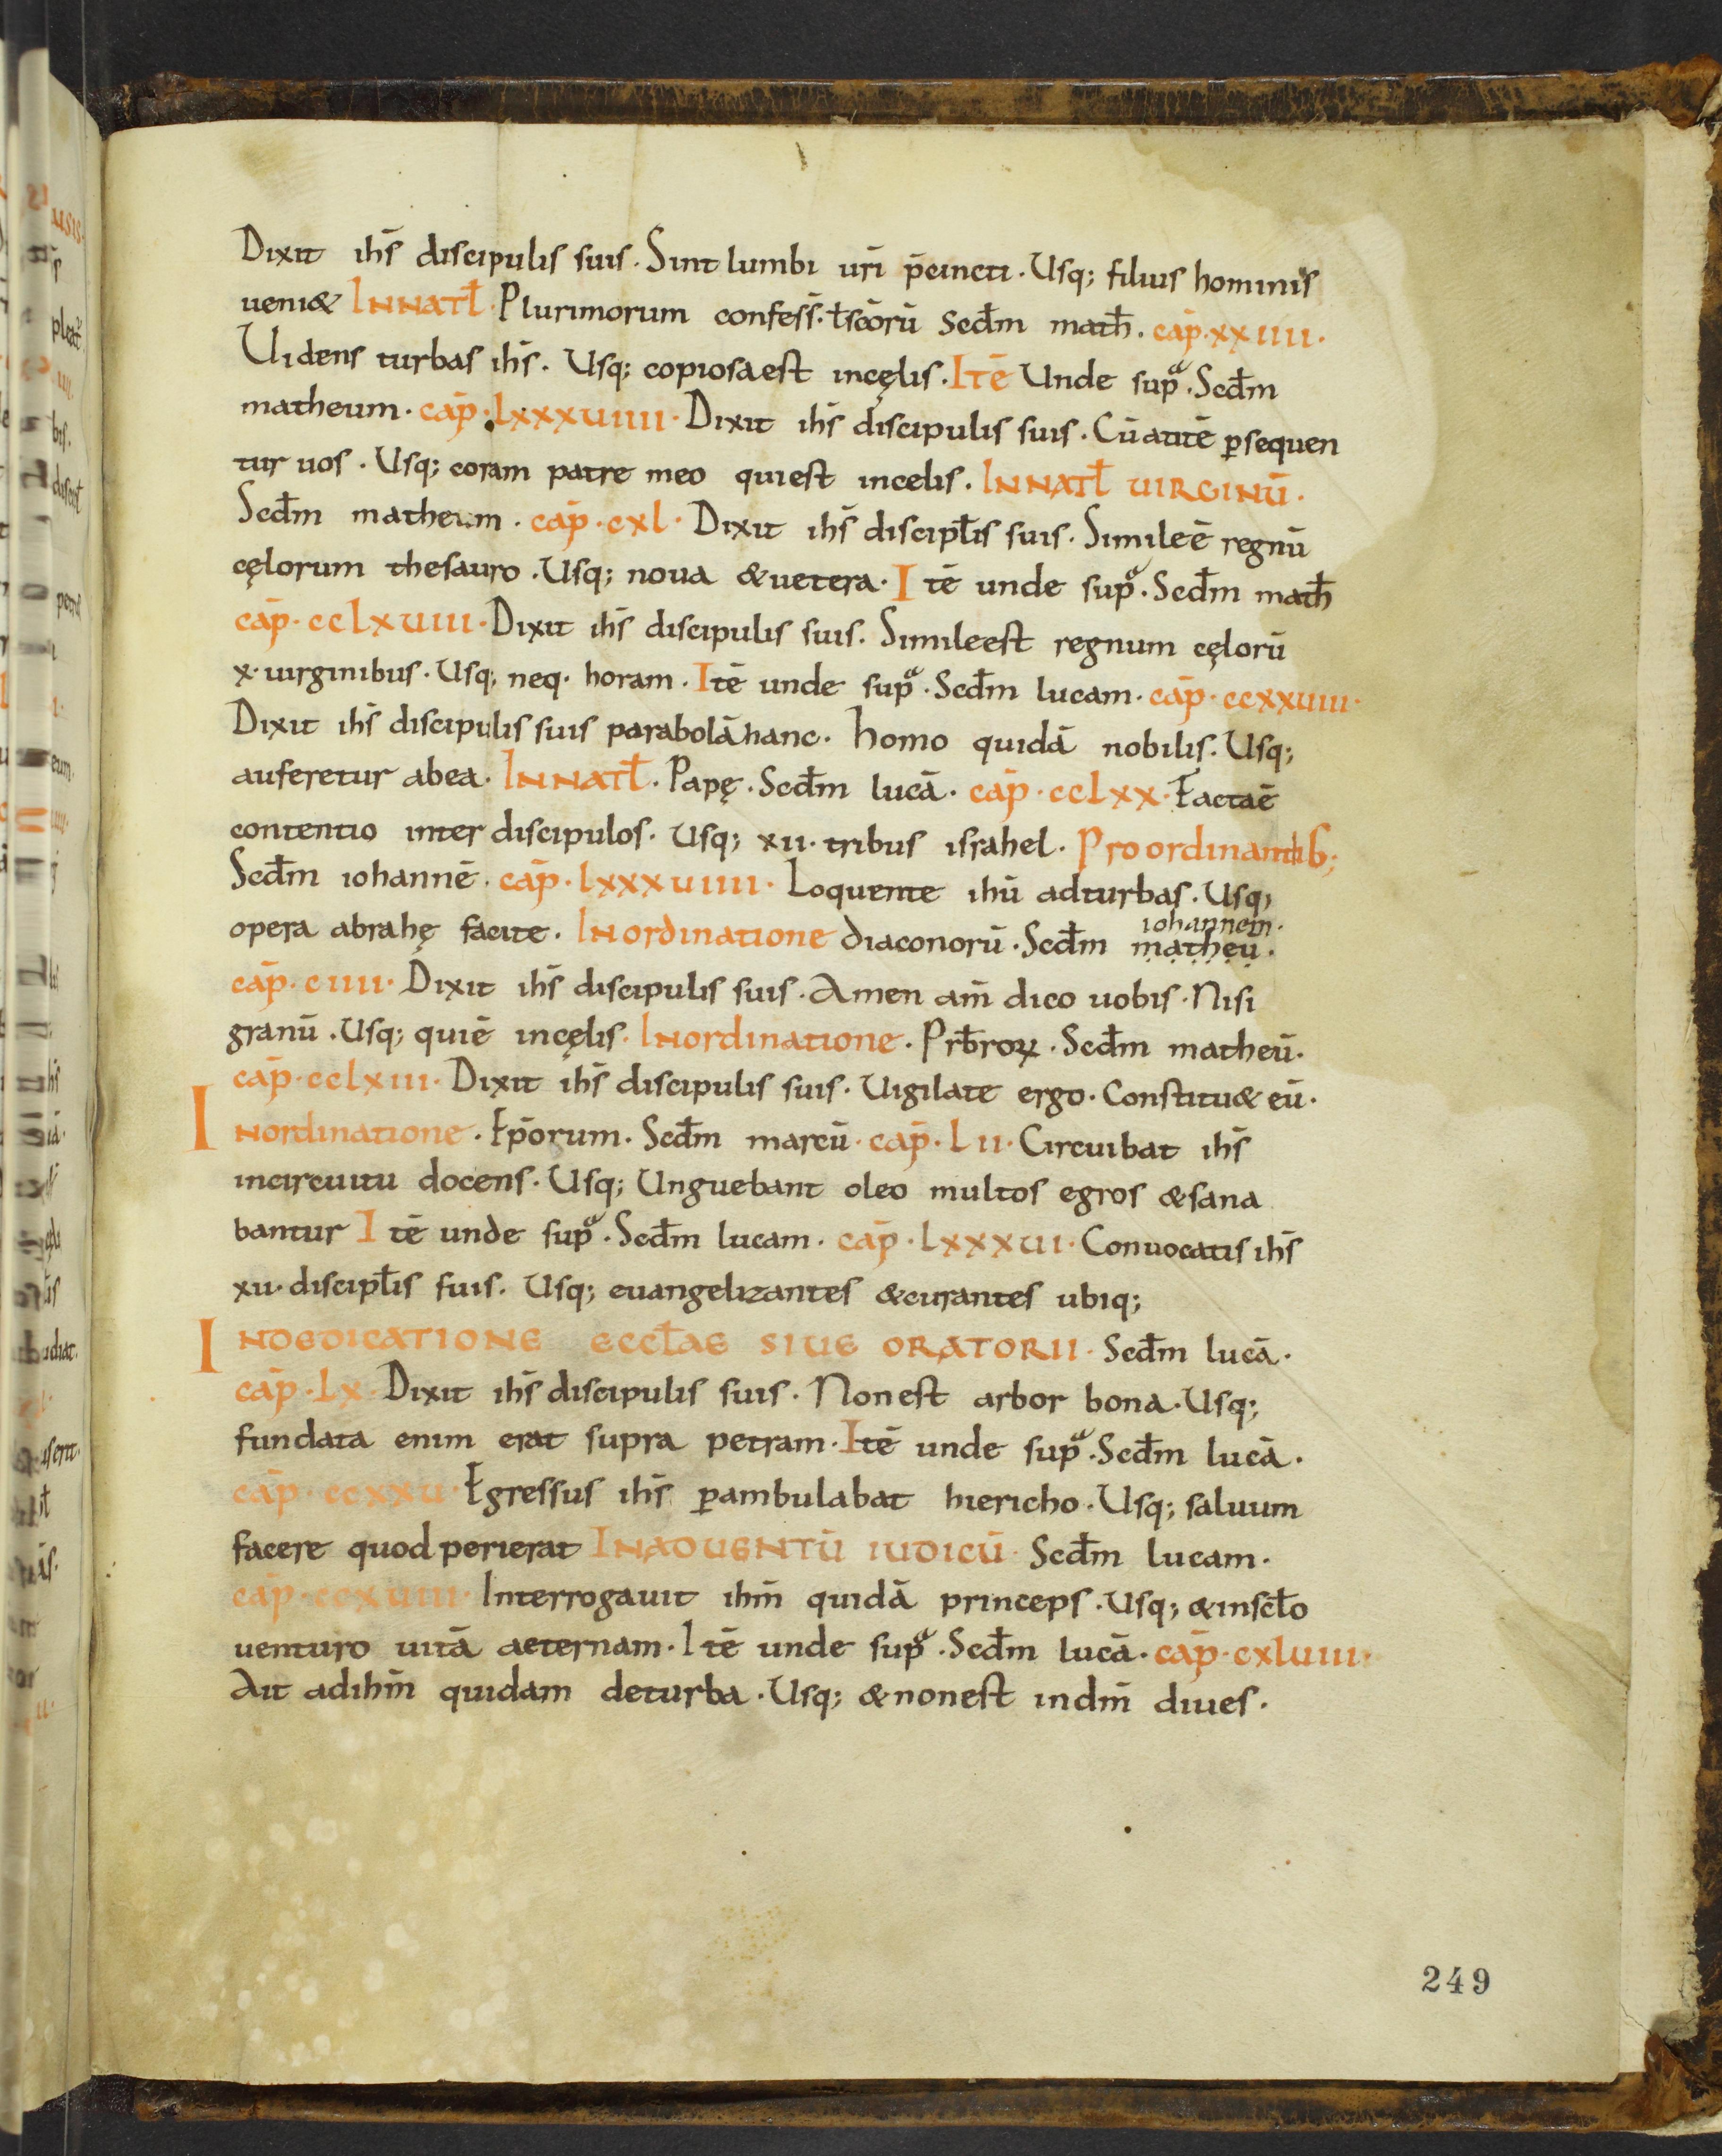 Dixit ihs̄ discipulis suis. Sint lumbi ur̄i p̄cincti. Usq; filius hominis
ueni& INNATL̄. Plurimorum confess̄. ł sc̄orū Scd̄m math̄. cap̄. xxiiii.
Uidens turbas ihs̄. Usq; copiosaest incęlis. Itē Unde supͣ. Scd̄m
matheum. cap̄. lxxxuiiii. Dixit ihs̄ discipulis suis. Cūautē p̄sequen
tur uos. Usq; coram patre meo quiest incelis. INNATL̄ UIRGINŪ.
Scd̄m matheum. cap̄. cxl. Dixit ihs̄ discipl̄is suis. Simileē regnū
cęlorum thesauro. Usq; noua &uetera. Itē unde supͣ. Scd̄m math̄
cap̄. cclxuiii. Dixit ihs̄ discipulis suis. Simileest regnum cęlorū
x. uirginibus. Usq; neq. horam. Itē unde supͣ. Scd̄m lucam. cap̄. ccxxuiiii.
Dixit ihs̄ discipulis suis parabolāhanc. homo quidā nobilis. Usq;
auferetur abea. INNATL̄. Papę. Scd̄m lucā. cap̄. cclxx. Factaē
contentio inter discipulos. Usq; xii. tribus israhel. Pro ordinantib;
Scd̄m iohannē. cap̄. lxxxuiiii. Loquente ihū adturbas. Usq;
iohannem.
opera abrahę facite. INordinatione diaconorū. Scd̄m ṃạṭḥẹụ̄.
cap̄. ciiii. Dixit ihs̄ discipulis suis. Amen am̄ dico uobis. Nisi
granū. Usq; quiē incęlis. INordinatione. Prb̄roꝝ. Scd̄m matheū.
cap̄. cclxiii. Dixit ihs̄ discipulis suis. Uigilate ergo. Constitu& eū.
INordinatione. Ep̄orum. Scd̄m marcū. cap̄. Lii. Circuibat ihs̄
incircuitu docens. Usq; Unguebant oleo multos egros &sana
bantur Itē unde supͣ. Scd̄m lucam. cap̄. lxxxui. Conuocatis ihs̄
xii. discipl̄is suis. Usq; euangelizantes &curantes ubiq;
INDEDICATIONE ECCL̄AE SIUE ORATORII. Scd̄m lucā.
cap̄. lx. Dixit ihs̄ discipulis suis. Nonest arbor bona. Usq;
fundata enim erat supra petram. Itē unde supͣ. Scd̄m lucā.
cap̄. ccxxu. Egressus ihs̄ p̄ambulabat hiericho. Usq; saluum
facere quod perierat INADUENTŪ IUDICŪ. Scd̄m lucam.
cap̄. ccxuiii. Interrogauit ihm̄ quidā princeps. Usq; &inscl̄o
uenturo uitā aeternam. Itē unde supͣ. Scd̄m lucā. cap̄. cxluiii.
Ait adihm̄ quidam deturba. Usq; &nonest indm̄ diues.
249